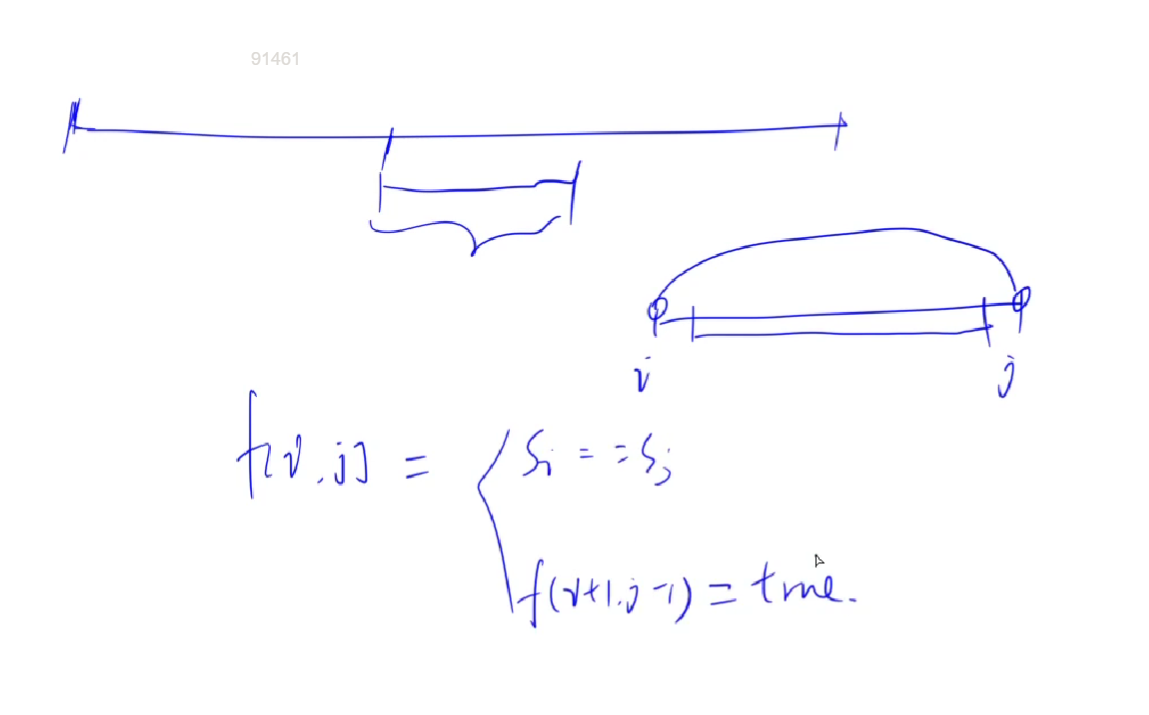 91461
i j
f[i,j] = { Si == Sj
f(i+1,j-1) = true.